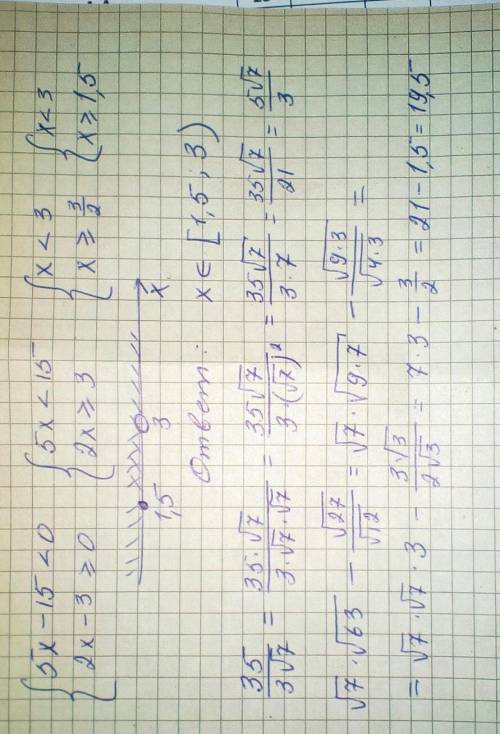 {5x-15<0 {5x<15 {x<3 {x<3
{2x-3≥0 {2x≥3 {x≥3/2 {x≥1,5
1,5 3 x
Ответ: x∈[1,5; 3)
35/(3√7) = (35·√7)/(3·√7·√7) = (35√7)/(3·(√7)²) = (35√7)/(3·7) = (35√7)/21 = (5√7)/3
√7·√63 - √27/√12 = √7·√(9·7) - √(9·3)/√(4·3) =
= √7·√7·3 - (3√3)/(2√3) = 7·3 - 3/2 = 21-1,5=19,5